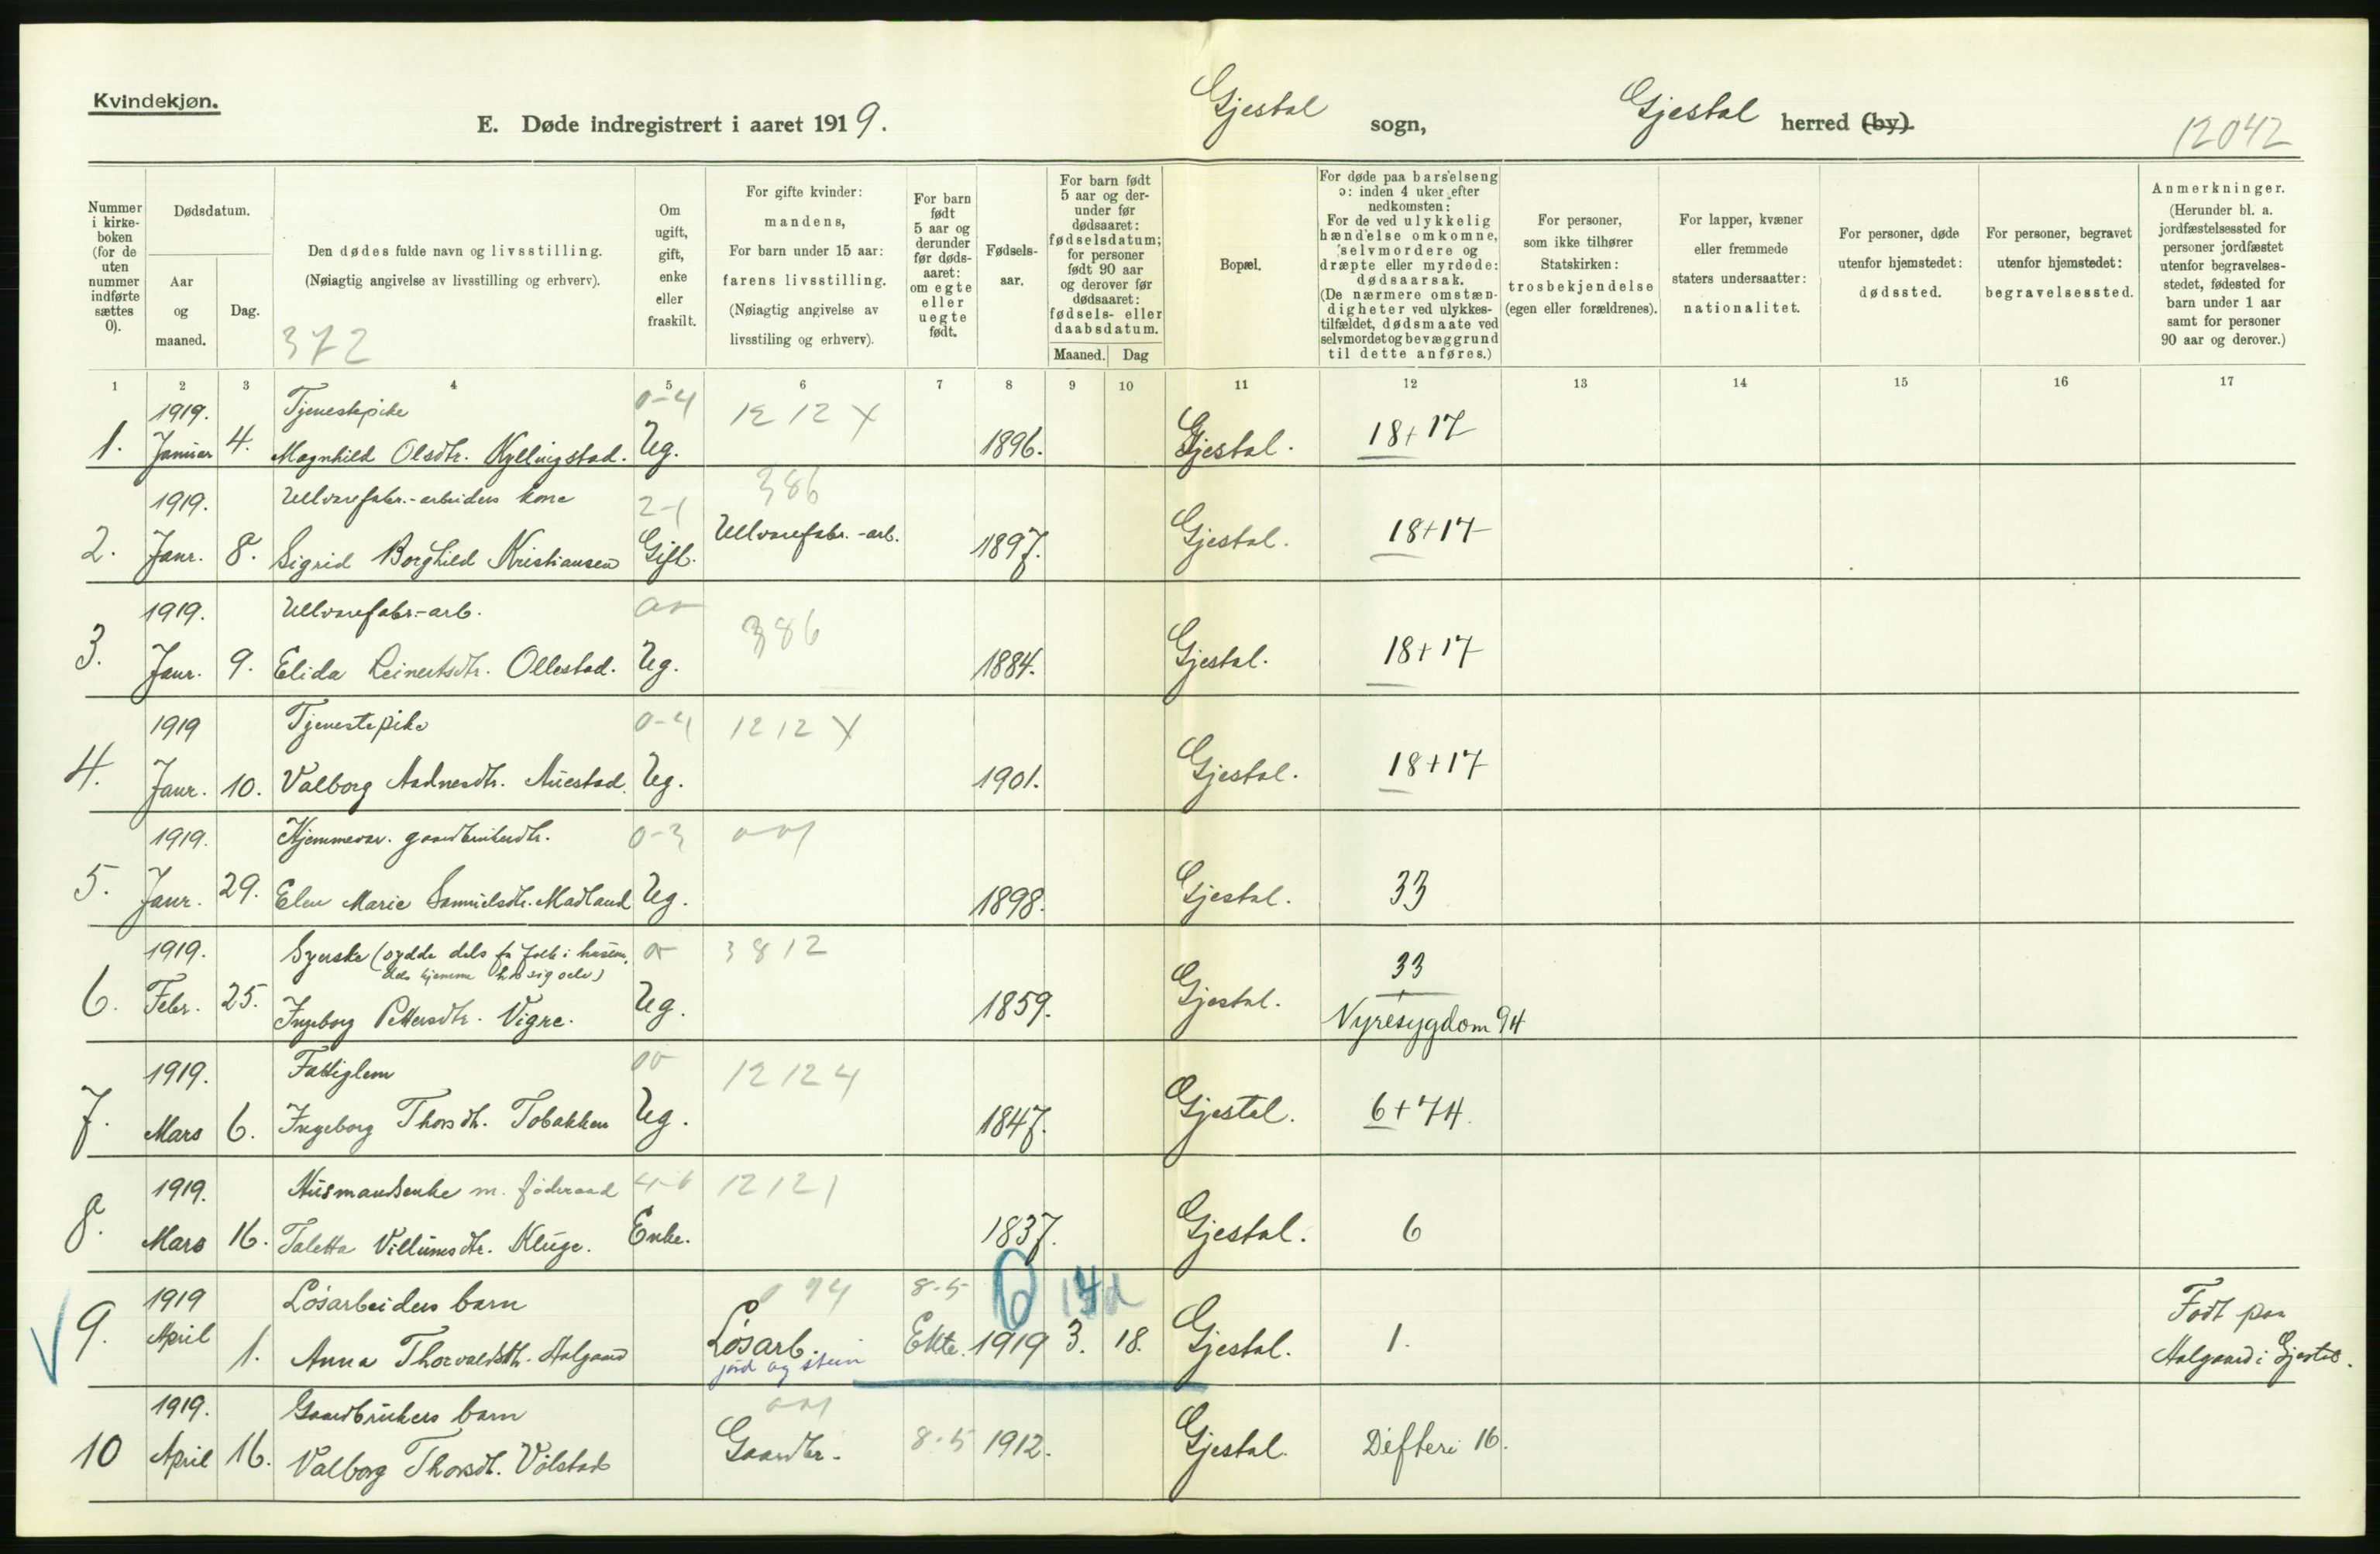 Kvindekjøn.
E. Døde indregistrert i aaret 1919.
Gjestal sogn,
Gjestal herred (by).
12042
Nummer i kirke-boken (for de uten nummer indførte sættes 0).
Dødsdatum.
Aar og maaned.
Dag.
Den dødes fulde navn og livsstilling.
(Nøiagtig angivelse av livsstilling og erhverv).
372
Om ugift, gift, enke eller fraskilt.
For gifte kvinder: mandens,
For barn under 15 aar: farens livsstilling.
(Nøiagtig angivelse av livsstiling og erhverv).
For barn født 5 aar og derunder før døds-aaret: om egte eller uegte født.
Fødsels-aar.
For barn født 5 aar og der-under før dødsaaret: fødselsdatum; for personer født 90 aar og derover før dødsaaret: fødsels- eller daabsdatum.
Maaned. Dag
Bopæl.
For døde paa barselseng ɔ: inden 4 uker efter nedkomsten:
For de ved ulykkelig hændelse omkomne, selvmordere og dræpte eller myrdede: dødsaarsak.
(De nærmere omstæn-digheter ved ulykkes-tilfældet, dødsmaate ved selvmordet og bevæggrund til dette anføres.)
For personer, som ikke tilhører Statskirken: trosbekjendelse (egen eller forældrenes).
For lapper, kvæner eller fremmede staters undersaatter: nationalitet.
For personer, døde utenfor hjemstedet: dødssted.
For personer, begravet utenfor hjemstedet: begravelsessted.
Anmerkninger.
(Herunder bl. a. jordfæstelsessted for personer jordfæstet utenfor begravelses-stedet, fødested for barn under 1 aar samt for personer 90 aar og derover.)
1 2 3 4 5 6 7 8 9 10 11 12 13 14 15 16 17
1919. Tjenestepike 0-4 12 12 X
1. Januar 4. Magnhild Olsdtr. Kyllingstad. Ug. 1896. Gjestal. 18+17
1919. Uldvarefabr.-arbeiders kone 2-1 386
2. Janr. 8. Sigrid Borghild Kristiansen Gift. Uldvarefabr.-arb. 1897. Gjestal. 18+17
1919. Uldvarefabr.-arb. 386
3. Janr. 9. Elida Leinertsdtr. Ollestad. Ug. 1884. Gjestal. 18+17
1919 Tjenestepike 0-4 12 12 X
4. Janr. 10. Valborg Aadnesdtr. Auestad. Ug. 1901. Gjestal. 18+17
1919. Hjemmevær. gaardbrukerdtr. 0-3 001
5. Janr. 29. Elen Marie Samuelsdtr. Madland Ug. 1898. Gjestal. 33
1919. Syerske (sydde dels for folk i husene, 3812
dels hjemme hos sig selv) 33
6. Febr. 25. Ingeborg Pettersdtr. Vigre. Ug. 1859. Gjestal. Nyresygdom 94
1919. Fattiglem 12 12 4
7. Mars 6. Ingeborg Thorsdtr. Tobakken Ug. 1847. Gjestal. 6+74.
1919. Husmandsenke m. føderaad 4-6 12 12 1
8. Mars 16. Taletta Villumsdtr. Kluge. Enke. 1837. Gjestal. 6
1919 Løsarbeiders barn 094 8-5 6 14d
9. April 1. Anna Thorvaldsdtr. Aalgaard Løsarb. Ekte. 1919 3. 18. Gjestal. 1. Født paa
jord og stein Aalgaard i Gjestal.
1919. Gaardbrukers barn 001
10 April 16. Valborg Thorsdt. Volstad Gaardbr. 8-5 1912. Gjestal. Difteri 16.